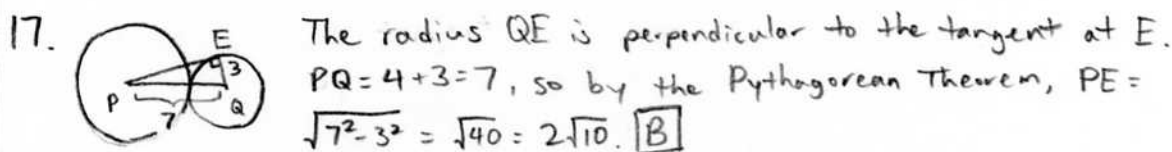 17.
E
3
P
Q
7
The radius QE is perpendicular to the tangent at E.
PQ = 4+3=7, so by the Pythagorean Theorem, PE =
√7²-3² = √40 = 2√10. B